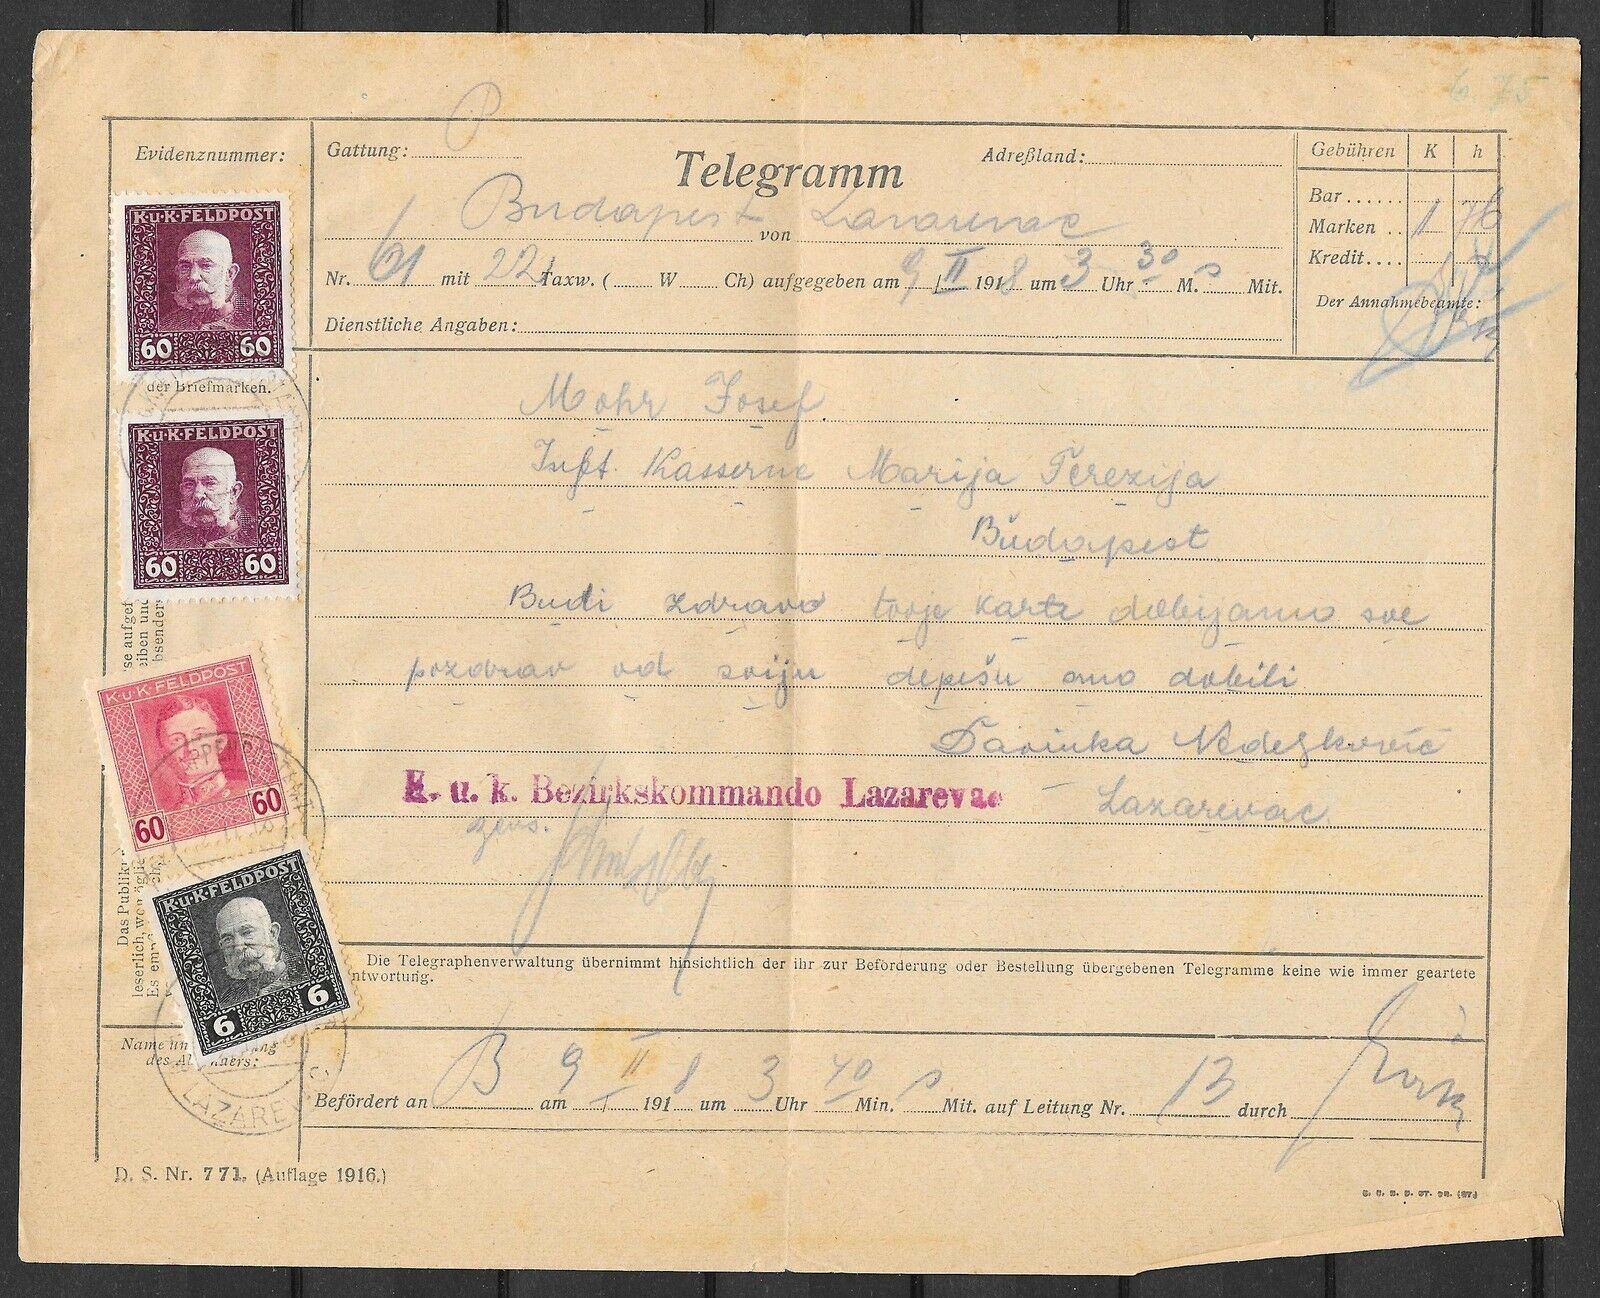 6.75
P
Evidenznummer:
Gattung:
Telegramm
Adreßland:
Gebühren K h
Bar
Marken 1 76
Kredit
Der Annahmebeamte:
Budapest von Lazarevac
Nr. 61 mit 22 Taxw. ( W Ch) aufgegeben am 9 / II 1918 um 3 Uhr 30 M. Mit.
Dienstliche Angaben:
K.u.K.FELDPOST
60 60
der Briefmarken.
K.u.K.FELDPOST
60 60
K.u.K.FELDPOST
60 60
K.u.K.FELDPOST
6 6
Mohr Josef
Inft. Kasserne Marija Terezija
Budapest
Budi zdravo tvoje karte dobijamo sve
pozdrav od sviju depešu smo dobili
Darinka Nedeljković
K. u. k. Bezirkskommando Lazarevac
Lazarevac
Das Publik
leserlich,
Die Telegraphenverwaltung übernimmt hinsichtlich der ihr zur Beförderung oder Bestellung übergebenen Telegramme keine wie immer geartete
ntwortung.
Name
des
LAZAREV
Befördert an B am 9 / II 1918 um 3 Uhr 40 Min. Mit. auf Leitung Nr. 13 durch
D. S. Nr. 771. (Auflage 1916.)